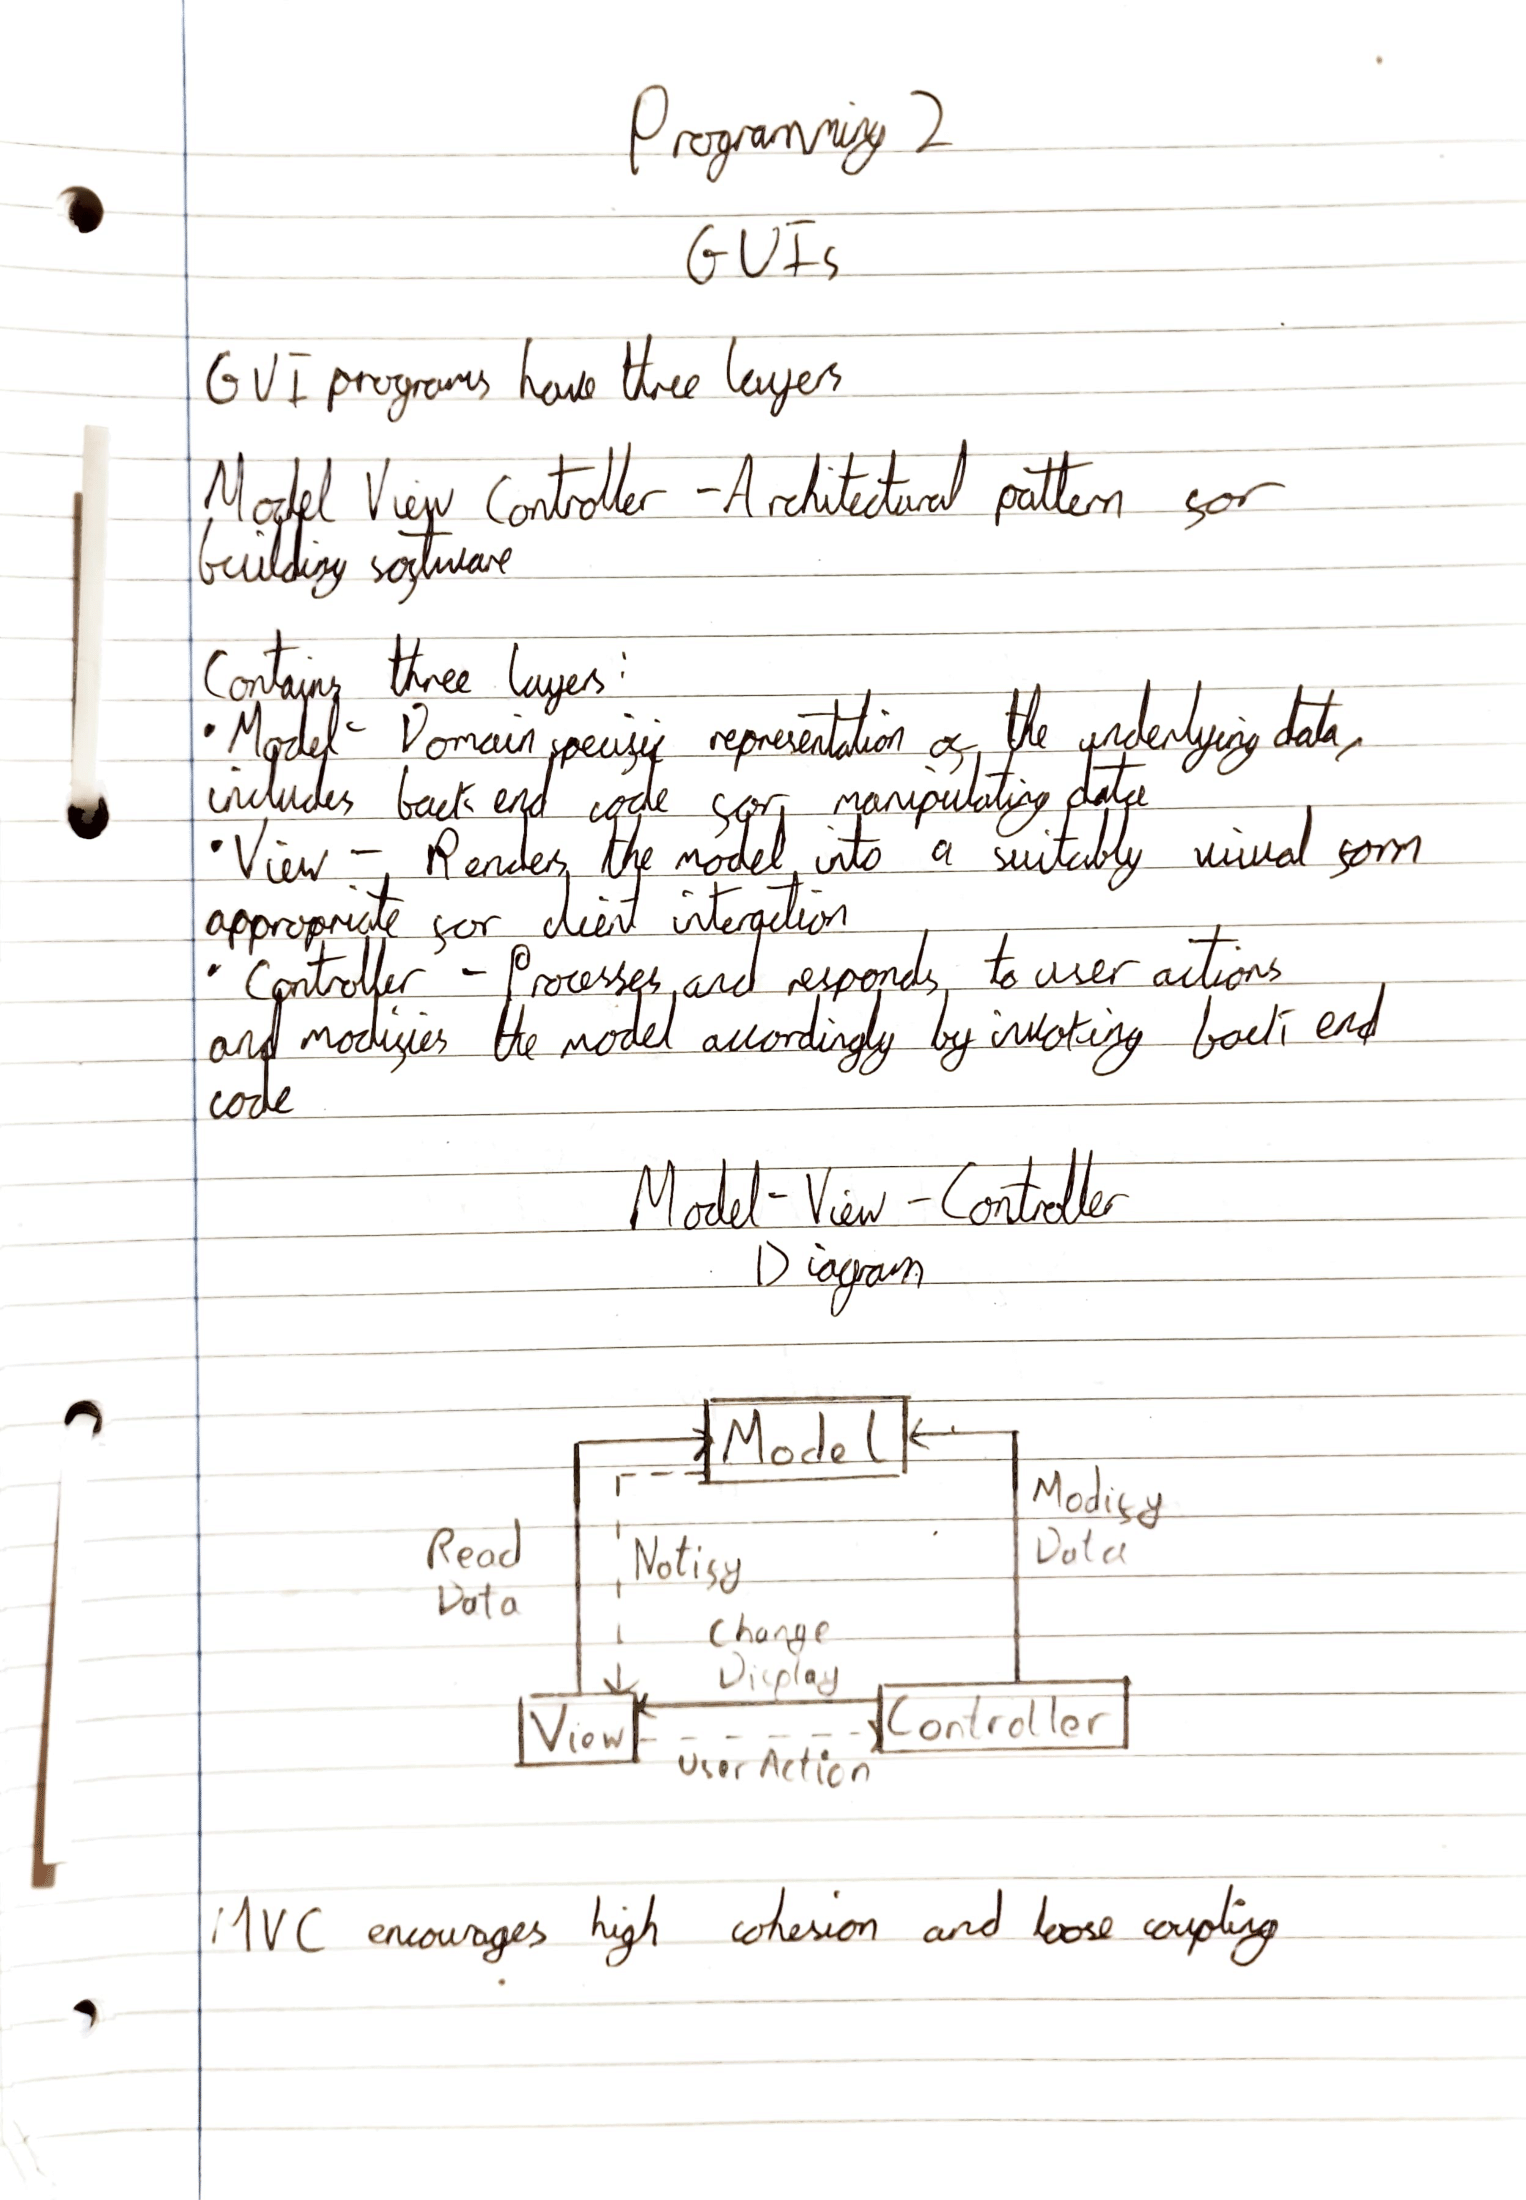 Programming 2
GUIs
GUI programs have three layers
Model View Controller - Architectural pattern for
building software
Contains three layers:
• Model - Domain specific representation of the underlying data,
includes back end code for manipulating data
• View - Renders the model into a suitably visual form
appropriate for client interaction
• Controller - Processes and responds to user actions
and modifies the model accordingly by invoking back end
code
Model - View - Controller
Diagram
Model
Modify
Data
Read
Data
Notify
Change
Display
View
Controller
User Action
MVC encourages high cohesion and loose coupling